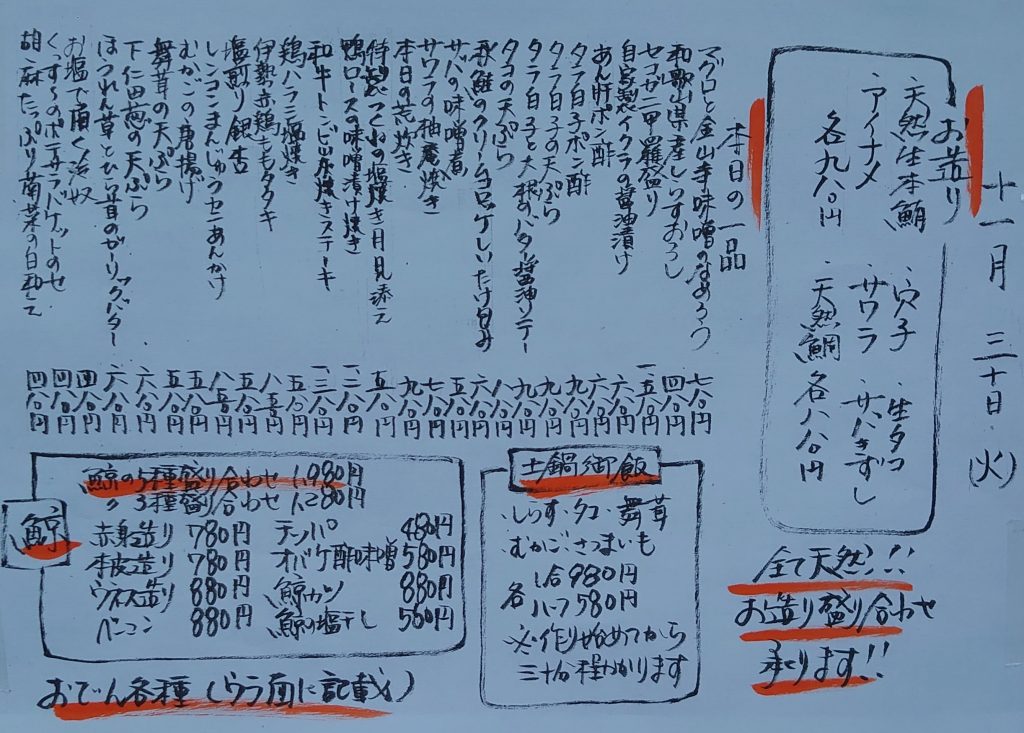 十一月三十日(火)
お造り
・天然生本鮪
・アイナメ
各九八〇円
・穴子
・サワラ
・天然鯛
・生タコ
・サバきずし
各八八〇円
全て天然!!
お造り盛り合わせ
承ります!!
本日の一品
マグロと金山寺味噌のなめろう 七八〇円
和歌山県産しらすおろし 四八〇円
セコガニ甲羅盛り 一、五八〇円
自家製イクラの醤油漬け 六八〇円
あん肝ポン酢 六八〇円
タラ白子ポン酢 九八〇円
タラ白子の天ぷら 九八〇円
タラ白子と大根のバター醤油ソテー 九八〇円
タコの天ぷら 八八〇円
秋鮭のクリームコロッケしいたけ包み 六八〇円
サバの味噌煮 五八〇円
サワラの柚庵焼き 七八〇円
本日の荒炊き 九八〇円
特製つくねの塩焼き月見添え 五八〇円
鴨ロースの味噌漬け焼き 一、二八〇円
和牛トンビ炭焼きステーキ 一、三八〇円
鶏ハラミ塩焼き 五八〇円
伊勢赤鶏ももタタキ 八五〇円
塩煎り銀杏 五八〇円
レンコンまんじゅうセコあんかけ 八五〇円
むかごの唐揚げ 五八〇円
舞茸の天ぷら 五八〇円
下仁田葱の天ぷら 六八〇円
ほうれん草とひら茸のガーリックバター 六八〇円
お塩で頂く冷奴 四八〇円
くずし豆のポテサラバケットのせ 四八〇円
胡麻たっぷり菊菜の白和え 四八〇円
土鍋御飯
・しらす・タコ・舞茸
・むかご・さつまいも
各
一合980円
ハーフ580円
※作り始めてから
三十分程かかります
鯨
鯨の5種盛り合わせ 1,980円
〃 3種盛り合わせ 1,280円
赤身造り 780円 テッパ 480円
本皮造り 780円 オバケ酢味噌 580円
ウネス造り 880円 鯨カツ 880円
ベーコン 880円 鯨の塩干し 560円
おでん各種(ウラ面に記載)